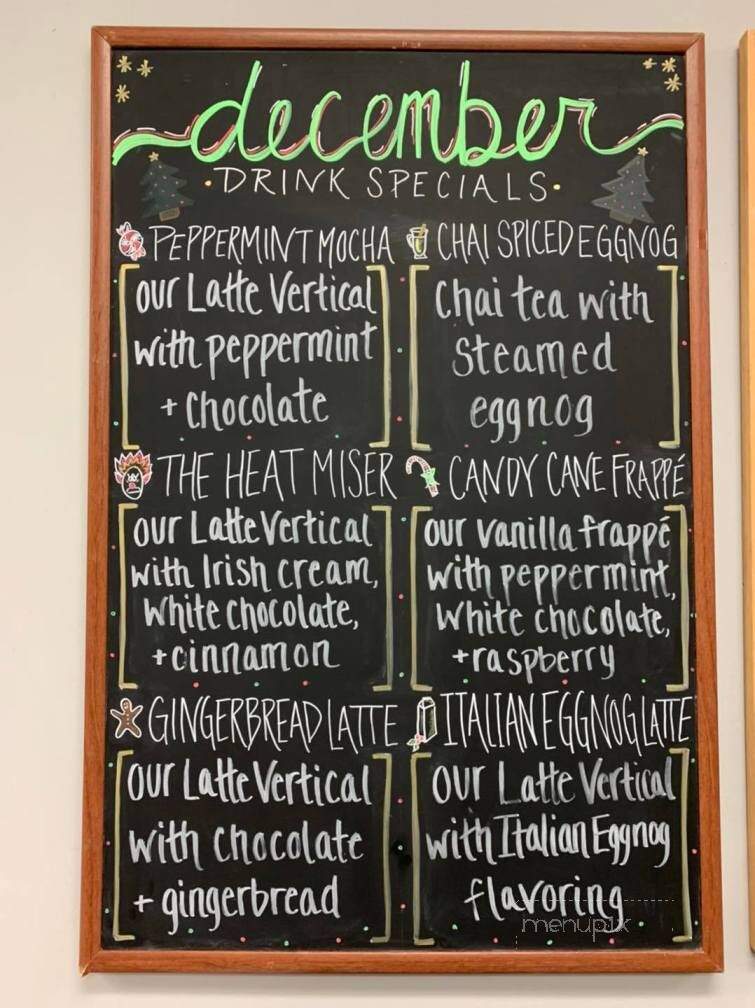 december
DRINK SPECIALS
PEPPERMINT MOCHA
our Latte Vertical
with peppermint
+ chocolate
CHAI SPICED EGGNOG
Chai tea with
steamed
eggnog
THE HEAT MISER
our Latte Vertical
with Irish cream,
white chocolate,
+cinnamon
CANDY CANE FRAPPÉ
our vanilla frappé
with peppermint,
white chocolate,
+raspberry
GINGERBREAD LATTE
our Latte Vertical
with chocolate
+ gingerbread
ITALIAN EGGNOG LATTE
our Latte Vertical
with Italian Eggnog
flavoring
menupix